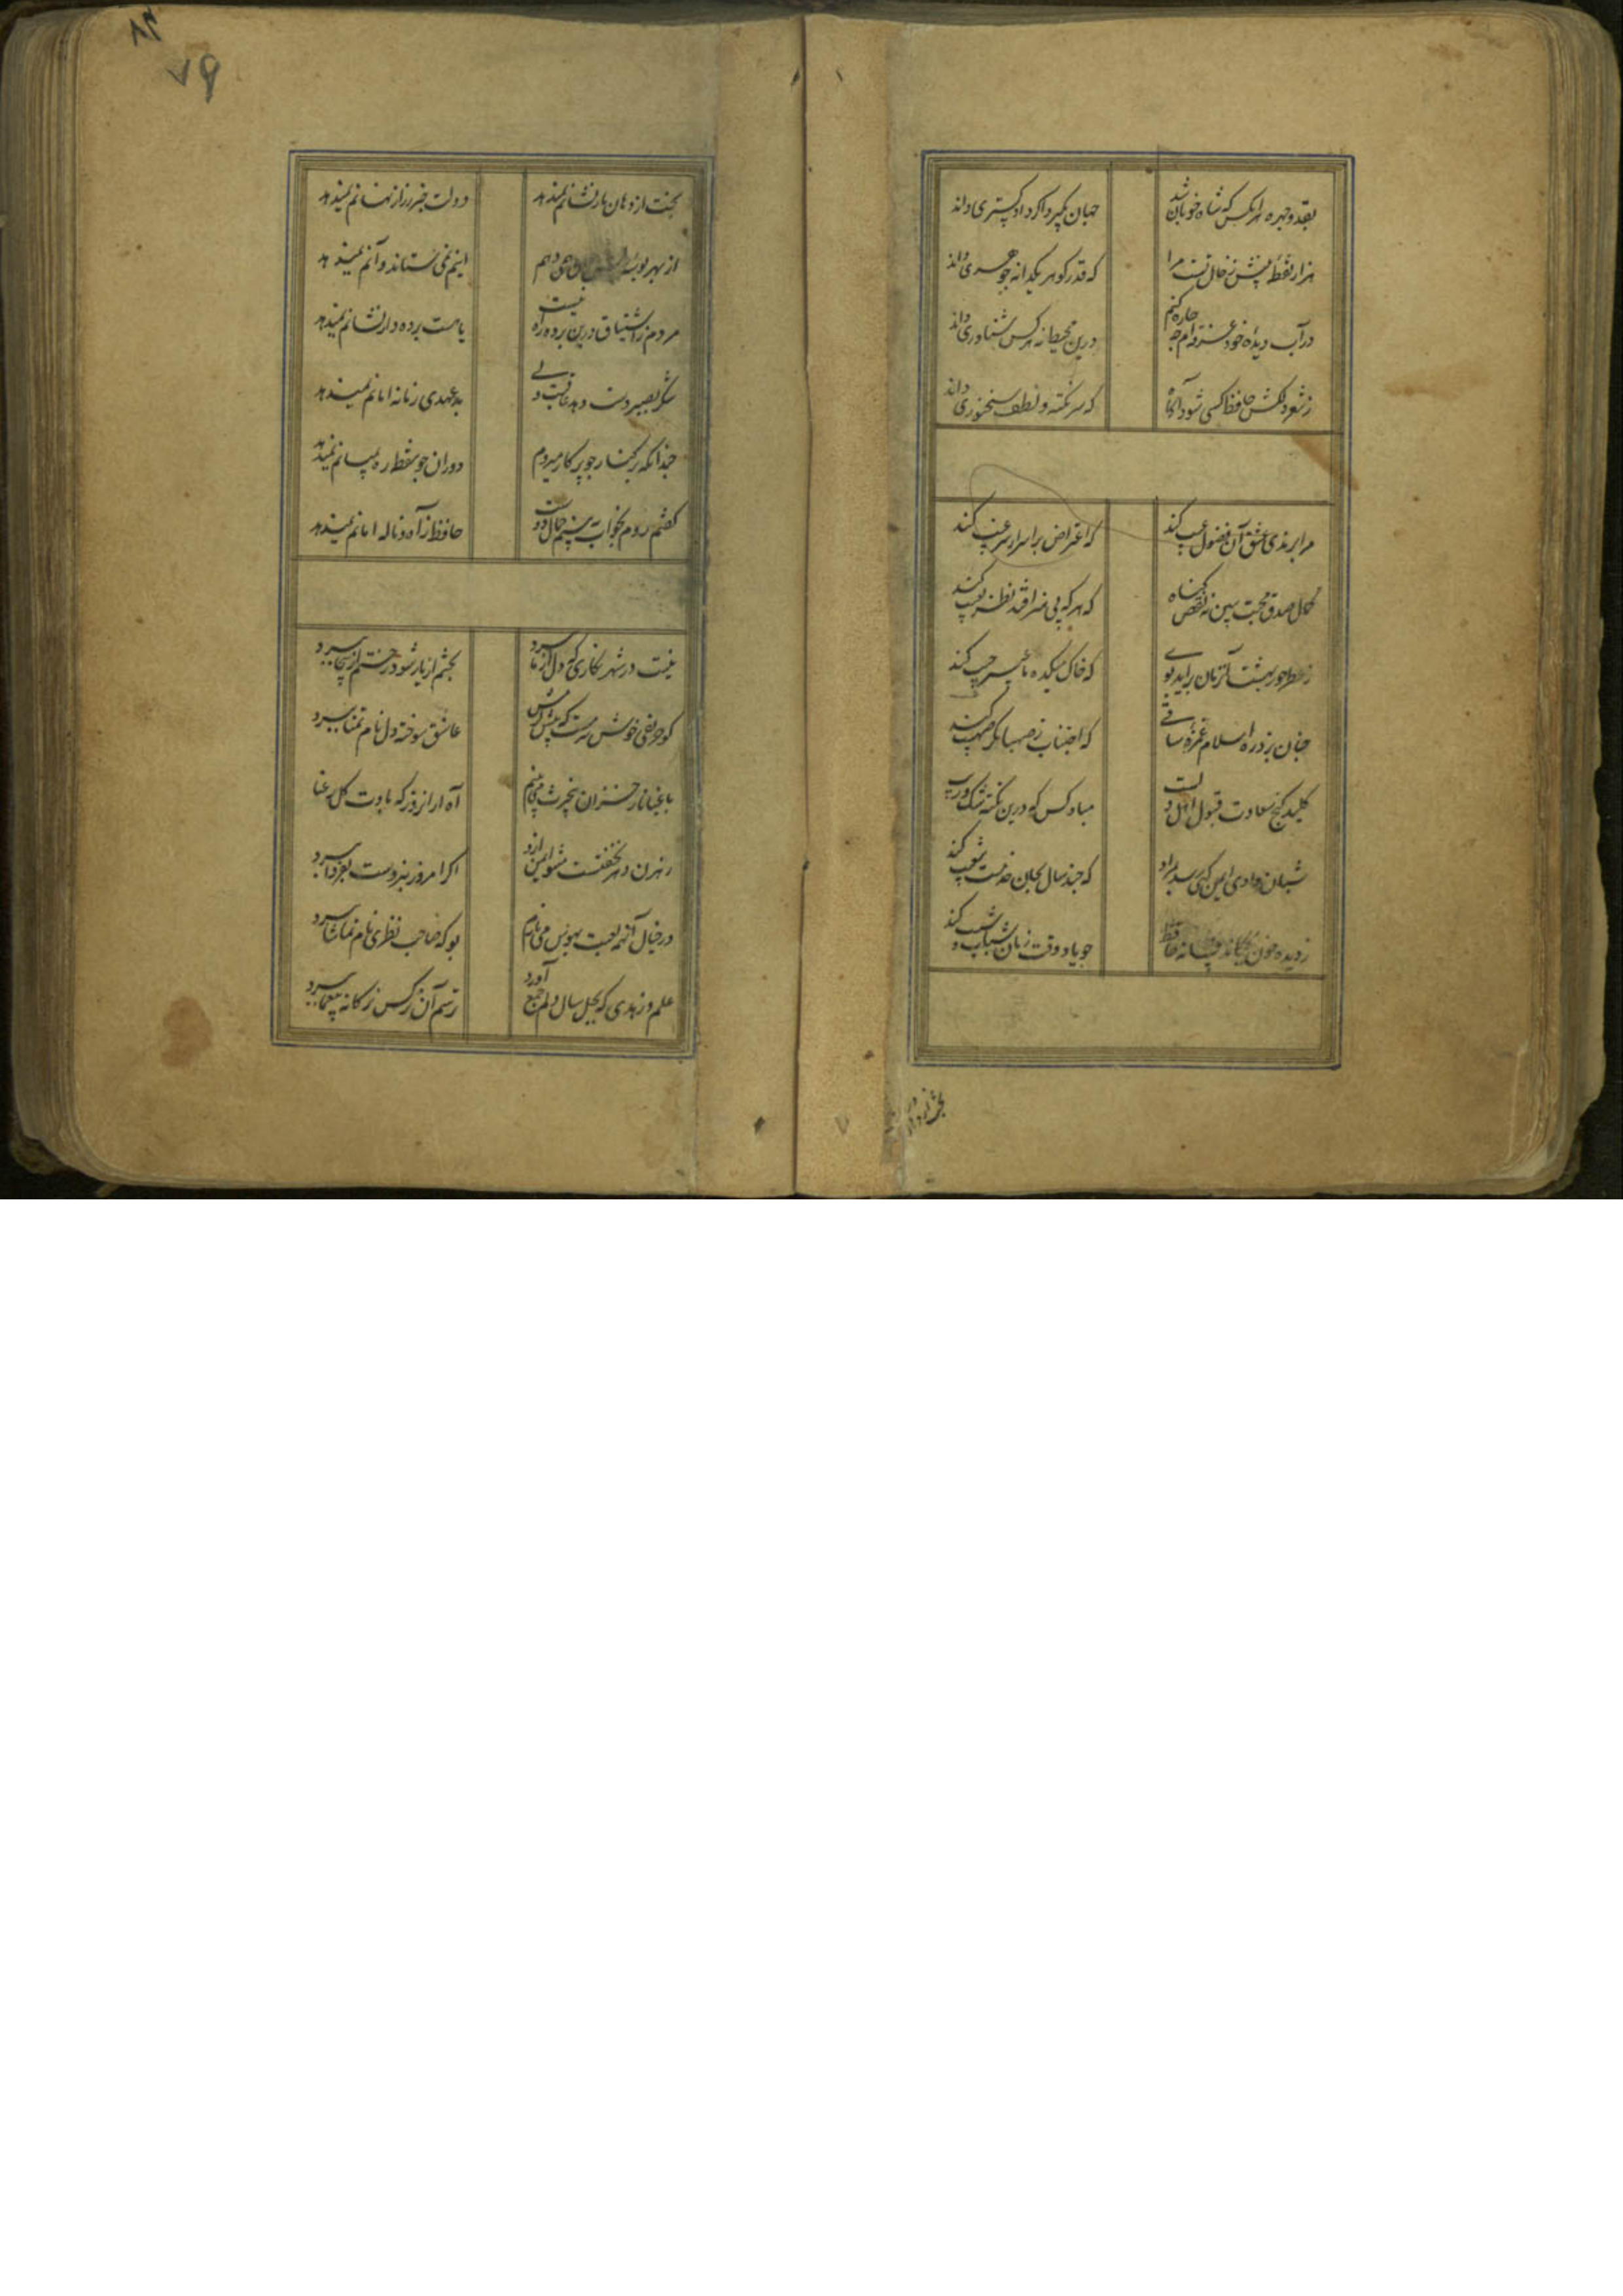 بقد و چهره هر آنکس که شاه خوبان شد جهان بگیرد اگر دادگستری داند
هزار نقطه بینش ز خال تست مرا که قدر گوهر یکدانه جوهری داند
در آب دیده خود غرقه‌ام چه چاره کنم درین محیط نه هر کس شناوری داند
ز شعر دلکش حافظ کسی شود آگاه که سر نکته و لطف سخنوری داند
مرا برندی و عشق آن فضول عیب کند که اعتراض بر اسرار غیب کند
کمال صدق محبت ببین نه نقص گناه که هر که بی هنر افتد نظر بعیب کند
ز عطر حور بهشت آنزمان براید بوی که خاک میکده ما عبیر جیب کند
چنان بزد ره اسلام غمزه ساقی که اجتناب ز صهبا مگر صهیب کند
کلید گنج سعادت قبول اهل دلیست مباد کس که درین نکته شک و ریب کند
شبان وادی ایمن گهی رسد بمراد که چند سال بجان خدمت شعیب کند
ز دیده خون بچکاند فسانه حافظ چو یاد وقت زمان شباب و شیب کند
۸۳
۷۹
بخت از دهان یار نشانم نمیدهد دولت خبر ز راز نهانم نمیدهد
از بهر بوسه جان همی دهم اینم نمی‌ستاند و آنم نمیدهد
مردم ز اشتیاق و درین پرده راه نیست یا هست پرده دار نشانم نمیدهد
شکر بصبر دست دهد عاقبت ولی بد عهدی زمانه امانم نمیدهد
چندانکه بر کنار چو پرگار میروم دوران چو نقطه ره بمیانم نمیدهد
گفتم روم بخواب ببینم جمال دوست حافظ ز آه و ناله امانم نمیدهد
نیست در شهر نگاری که دل از ما ببرد بختم ار یار شود رختم از اینجا ببرد
کو حریفی خوش سرمست که پیش کرمش عاشق سوخته دل نام تمنا ببرد
باغبانا ز خزان بیخبرت می‌بینم آه از آنروز که بادت گل رعنا ببرد
رهزن دهر نخفتست مشو ایمن ازو اگر امروز نبردست بفردا ببرد
در خیال آنهمه لعبت بهوس می‌بازم بو که صاحب نظری نام تماشا ببرد
علم و زهدی که بچل سال دلم جمع آورد ترسم آن نرگس ترکانه بیغما ببرد